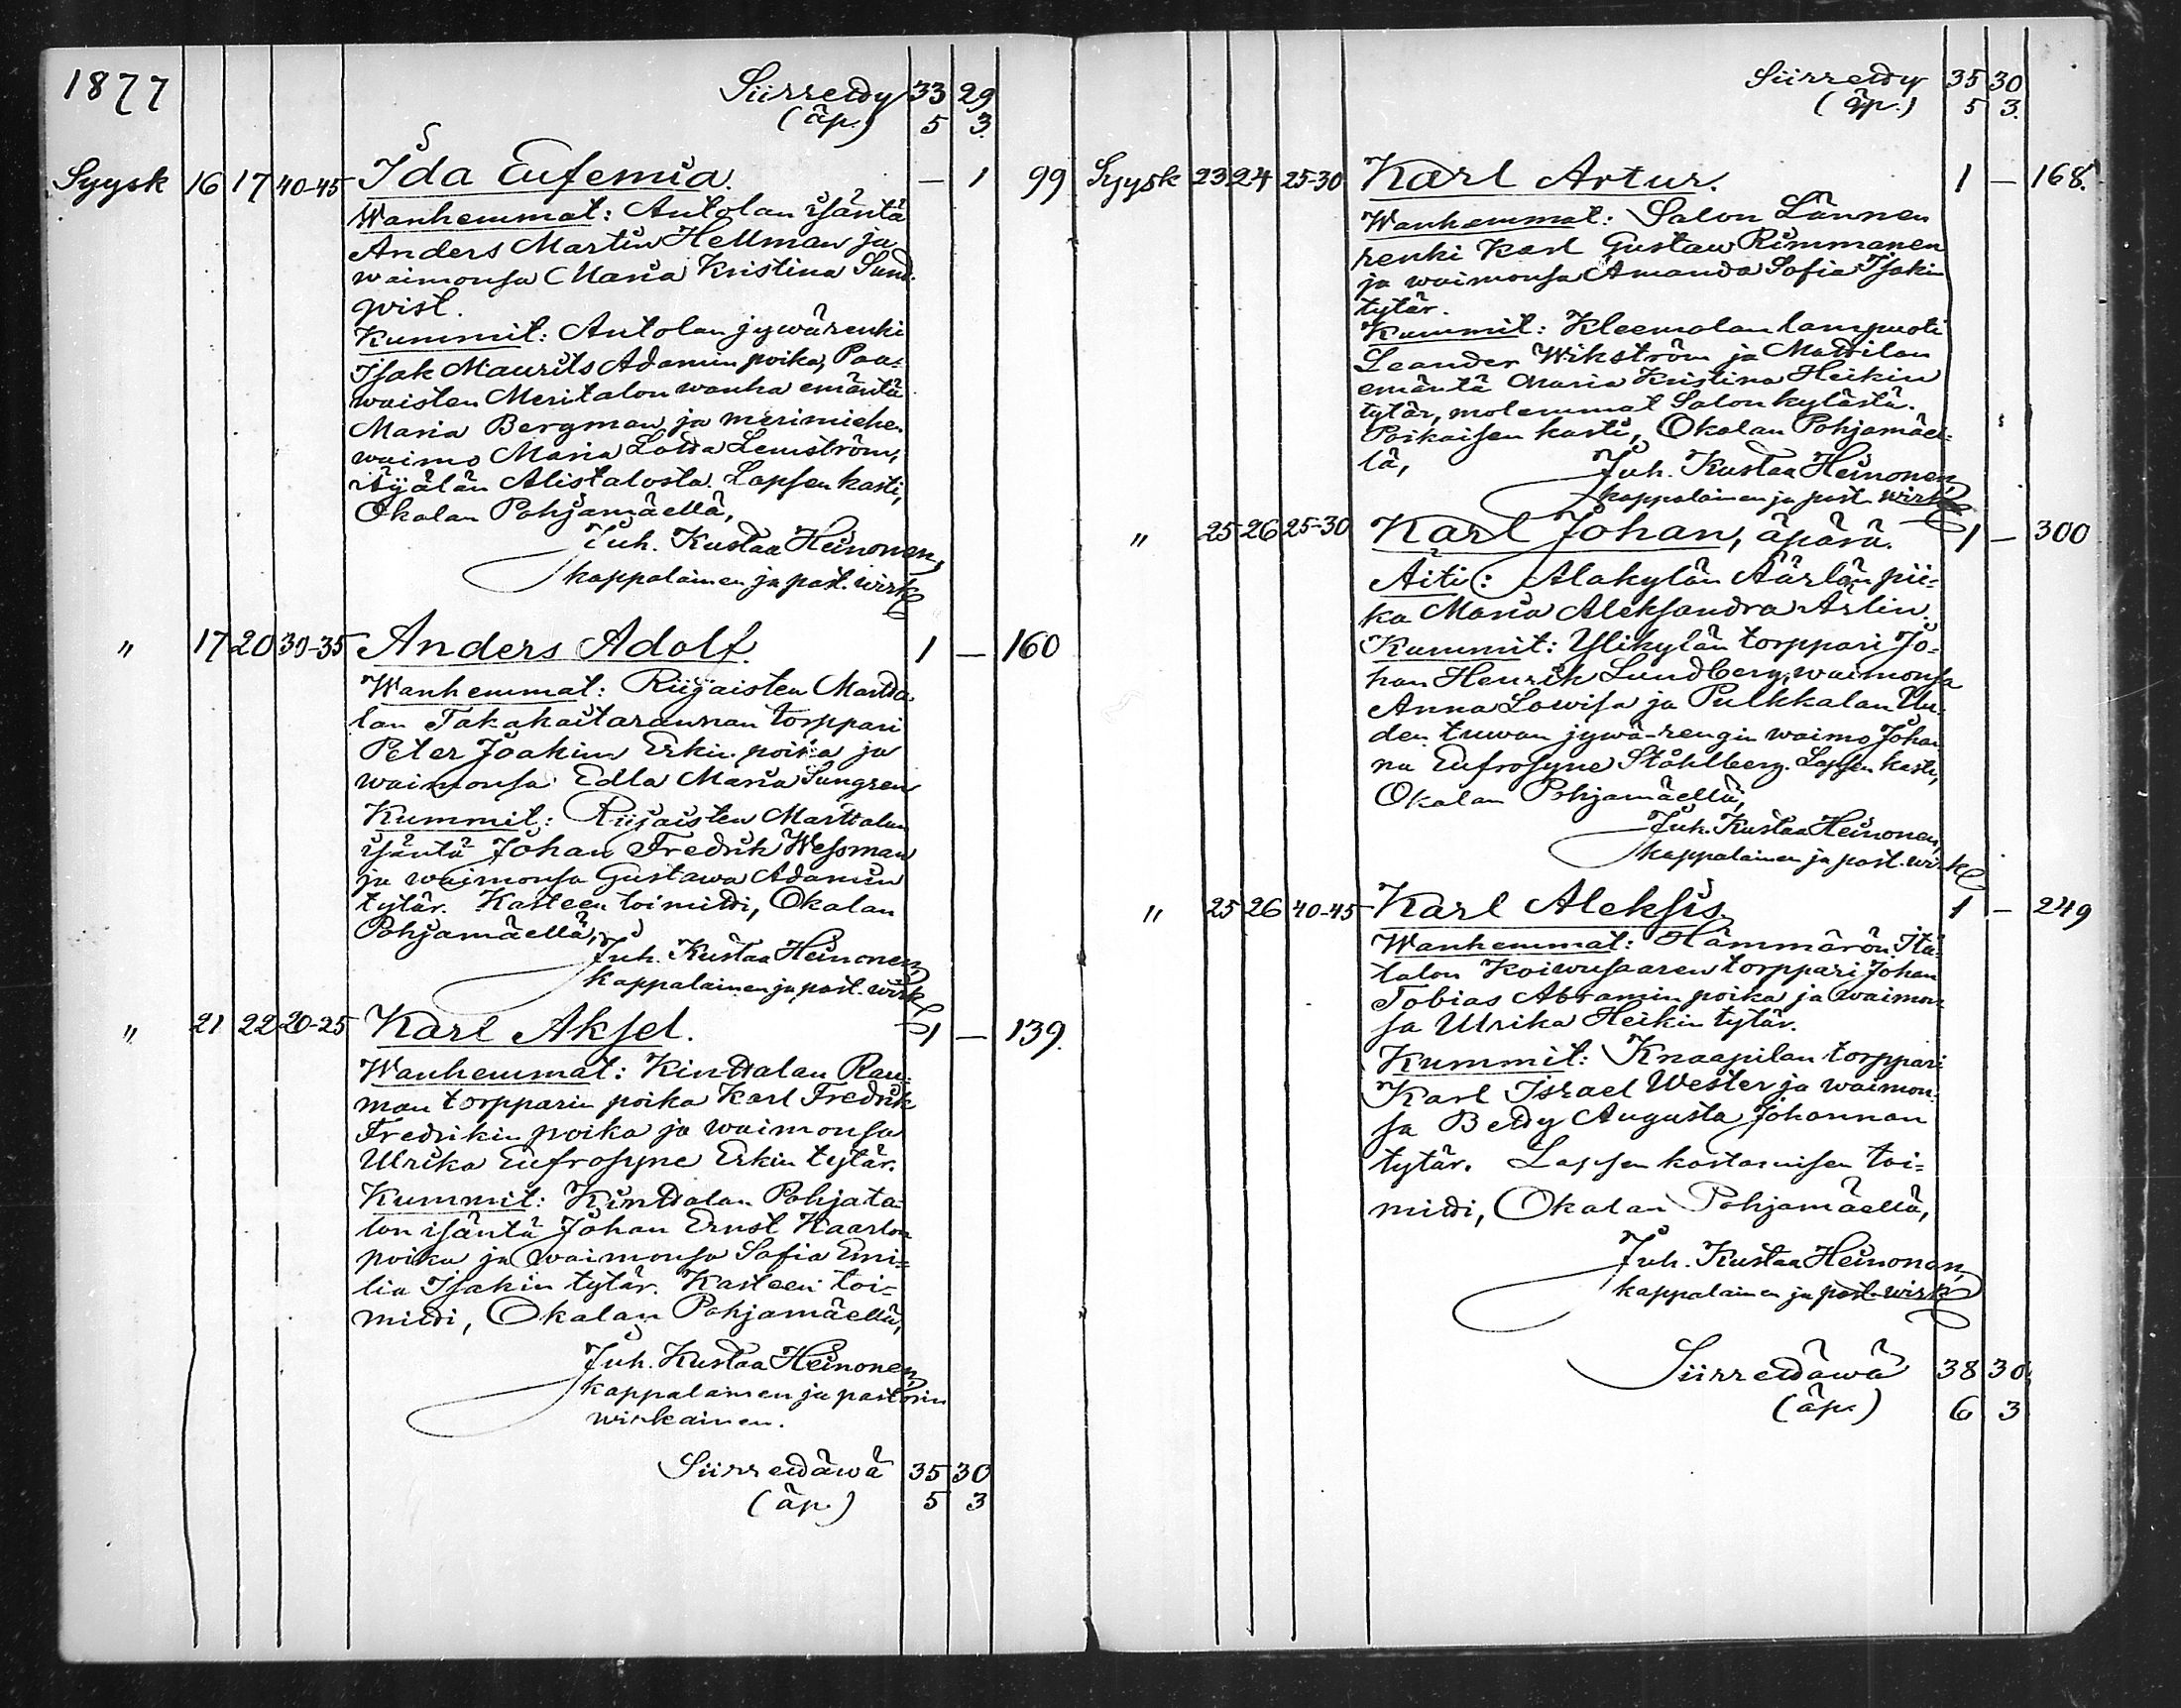 1877
Siirretty 33 29
(äp.) 5 3.
Syysk 16 17 40-45 Ida Eufemia. — 1 99
Wanhemmat: Antolan isäntä
Anders Martin Hellman ja
waimonsa Maria Kristina Sund-
qvist.
Kummit: Antolan jywärenki
Isak Maurits Adamin poika, Paa-
waisten Meritalon wanha emäntä
Maria Bergman ja merimiehen
waimo Maria Lotta Lemström,
Alistalosta. Lapsen kasti,
Okalan Pohjamäellä,
Juh. Kustaa Heinonen,
kappalainen ja past. wirk
" 17 20 30-35 Anders Adolf. 1 — 160
Wanhemmat: Riijaisten Martta-
lan Takahaitaraunan torppari
Peter Joakim Erkin poika ja
waimonsa Edla Maria Sungren
Kummit: Riijaisten Marttalan
isäntä Johan Fredrik Wesman
ja waimonsa Gustawa Adamin
tytär. Kasteen toimitti, Okalan
Pohjamäellä,
Juh. Kustaa Heinonen,
kappalainen ja past. wirk
" 21 22 20-25 Karl Aksel. 1 — 139.
Wanhemmat: Kinttalan Rau-
man torpparin poika Karl Fredrik
Fredrikin poika ja waimonsa
Ulrika Eufrosyne Erkin tytär.
Kummit: Kinttalan Pohjata-
lon isäntä Johan Ernst Kaarlon
poika ja waimonsa Sofia Emi-
lia Isakin tytär. Kasteen toi-
mitti, Okalan Pohjamäellä,
Juh. Kustaa Heinonen,
kappalainen ja pastorin
wirkainen.
Siirrettäwä 35 30
(äp.) 5 3
Siirretty 35 30
(äp.) 5 3.
Syysk 23 24 25-30 Karl Artur. 1 — 168.
Wanhemmat: Salon Lännen
renki Karl Gustaw Rimmanen
ja waimonsa Amanda Sofia Isakin
tytär.
Kummit: Kleemolan lampuoti
Leander Wikström ja Mattilan
emäntä Maria Kristina Heikin
tytär, molemmat Salon kylästä.
Poikaisen kasti, Okalan Pohjamäel-
lä,
Juh. Kustaa Heinonen,
kappalainen ja past. wirk
" 25 26 25-30 Karl Johan, äpärä. 1 — 300
Äiti: Alakylän Äärlän pii-
ka Maria Aleksandra Ärlin.
Kummit: Ylikylän torppari Jo-
han Henrik Lundberg, waimonsa
Anna Lowisa ja Pulkkalan Uu-
den tuwan jywä-rengin waimo Johan-
na Eufrosyne Ståhlberg. Lapsen kasti,
Okalan Pohjamäellä,
Juh. Kustaa Heinonen,
kappalainen ja past. wirk
" 25 26 40-45 Karl Aleksis. 1 — 249
Wanhemmat: Hämmärön Itä-
talon Koiwusaaren torppari Johan
Tobias Abramin poika ja waimon-
sa Ulrika Heikin tytär.
Kummit: Knaapilan torppari
Karl Israel Wester ja waimon-
sa Betty Augusta Johannan
tytär. Lapsen kastamisen toi-
mitti, Okalan Pohjamäellä,
Juh. Kustaa Heinonen,
kappalainen ja past. wirk
Siirrettäwä 38 30.
(äp.) 6 3